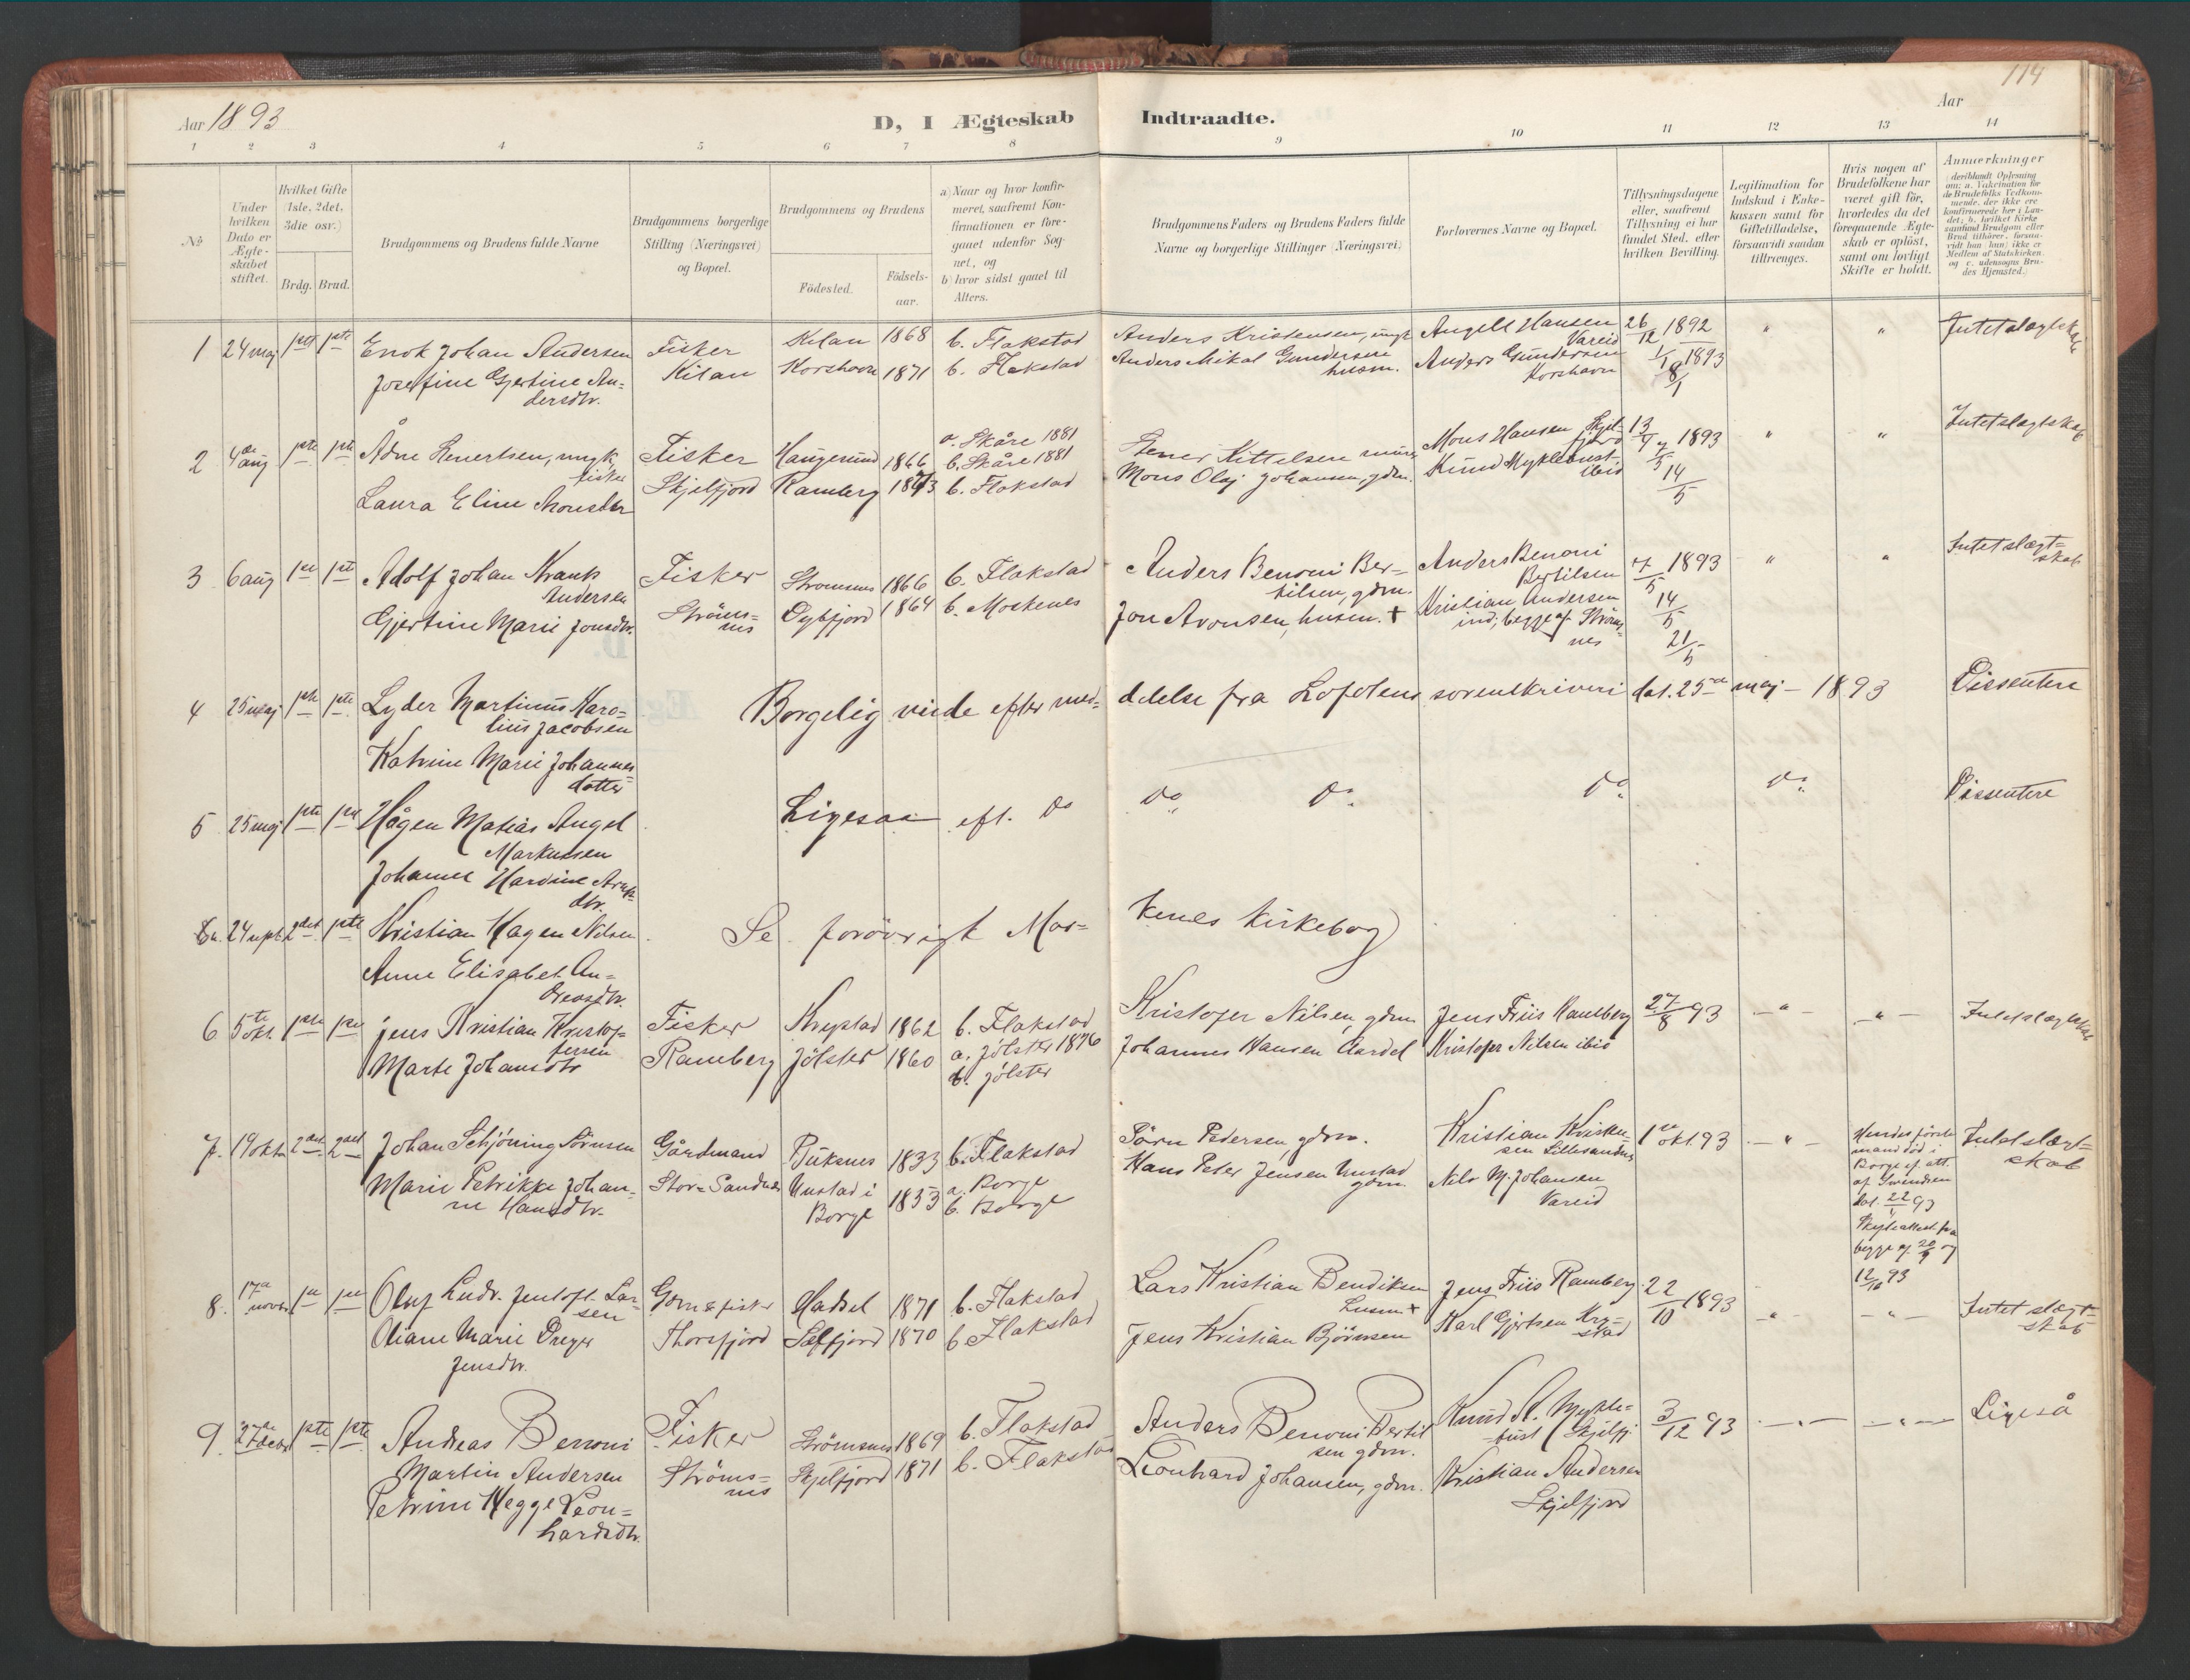 114
Aar 1893
D, I Ægteskab Indtraadte.
Aar
1 2 3 4 5 6 7 8 9 10 11 12 13 14
No
Under hvilken Dato er Ægteskabet stiftet.
Hvilket Gifte (1ste, 2det, 3die osv.)
Brdg. Brud.
Brudgommens og Brudens fulde Navne
Brudgommens borgerlige Stilling (Næringsvei) og Bopæl.
Brudgommens og Brudens
Födested.
Födselsaar.
a) Naar og hvor konfirmeret, saafremt Konfirmationen er foregaaet udenfor Sognet, og
b) hvor sidst gaaet til Alters.
Brudgommens Faders og Brudens Faders fulde
Navne og borgerlige Stillinger (Næringsvei)
Forlovernes Navne og Bopæl.
Tillysningsdagene eller, saafremt Tillysning ei har fundet Sted, efter hvilken Bevilling.
Legitimation for Indskud i Enkekassen samt for Giftetilladelse, forsaavidt saadan tiltrænges.
Hvis nogen af Brudefolkene har været gift før, hvorledes da det foregaaende Ægteskab er oplöst, samt om lovligt Skifte er holdt.
Anmerkninger
1 24 maj 1ste 1ste Enok Johan Andersen Fisker Kilan 1868 b. Flakstad Anders Kristensen, ungk Angell Hansen Vareid 26/12 1892 " " Intet slægtskab
Josefine Gjertine Andersdtr. Kilan Korshavn 1871 b. Flakstad Anders Mikal Gundersen husm. Anders Gundersen Korshavn 1/1 1893
8/1
2 4de aug 1ste 1ste Ådne Henertsen, ungk. fisker Fisker Haugesund 1866 a. Skåre 1881 b. Skåre 1881 Mons Hansen Skjelfjord 13/4 1893 " " Intet slægtskab
Laura Eline Monsdtr Skjelfjord Ramberg 1873 b. Flakstad Mons Olaj Johansen, gdm. Knud Myklebust ibid 7/5
14/5
3 6 aug 1ste 1ste Adolf Johan Krank Andersen Fisker Strömsnes 1866 b. Flakstad Anders Benoni Bertilsen, gdm. Anders Benoni Bertilsen 7/5 1893 " " Intet slægtskab
Gjertine Marie Jonsdtr. Strömsnes Dybfjord 1864 b. Moskenes Jon Aronsen, husm. + Kristian Andersen ind; begge af Strömsnes 14/5
21/5
4 25 maj 1ste 1ste Lyder Martinus Karolius Jacobsen Borgelig viede efter meddelelse fra Lofotens sorenskriveri dat. 25de maj - 1893 Dissentere
Katrine Marie Johannesdatter
5 25 maj 1ste 1ste Hågen Matias Angel Markussen Ligesaa eft. do do do. do. do. Dissentere
Johanne Hardine
24 sept. 2det 1ste Kristian Hagen Nilsen Se forövrigt Moskenes Kirkebog
Anne Elisabet Andreasdtr.
6 5te okt. 1ste 1ste Jens Kristian Kristoffersen Fisker Krystad 1862 b. Flakstad Kristofer Nilsen, gdm Jens Friis Ramberg 27/8 93 — " — — " — Intet slægtskab
Marte Johansdtr Ramberg Jölster 1860 a. Jölster 1876 b. Jölster Johannes Hansen Aardal Kristofer Nilsen ibid
7. 19 okt. 2det 2det Johan Schjöning Sörensen Gårdmand Buksnes 1833 b. Flakstad Sörn Pedersen, gdm. Kristian Kristensen Lillesandnes 1ste okt. 93 — " — Hendes förste mand död i Borge ef. att. af dat. 22 93 Skifteattest fra begge af 20/9 og 12/10 93 Intet slægtskab
Marie Petrikke Johanne Hansdtr. Stor-Sandnes Unstad i Borge 1853 a. Borge b. Borge Hans Peter Jensen Unstad gdm. Nils M. Johansen Vareid
8. 17de novbr. 1ste 1ste Oluf Ludv. Jentoft Larsen Gdm & fisker Hadsel 1871 b. Flakstad Lars Kristian Bendiksen husm + Jens Friis Ramberg 22/10 1893 — " — — " — Intet slægtskab
Oliane Marie Dreyer Jensdtr. Thorsfjord Selfjord 1870 b Flakstad Jens Kristian Björnsen Karl Gjertsen Krystad
9. 27de decbr 1ste 1ste Andreas Benoni Martin Andersen Fisker Strömsnes 1869 b. Flakstad Anders Benoni Bertilsen gdm. Knud A. Myklebust Skjelfj. 3/12 93 — " — — " — Ligeså
Petrine Hegge Leonhardsdtr. Strömsnes Skjelfjord 1871 b. Flakstad Leonhard Johansen, gdm. Kristian Andersen Skjelfjord